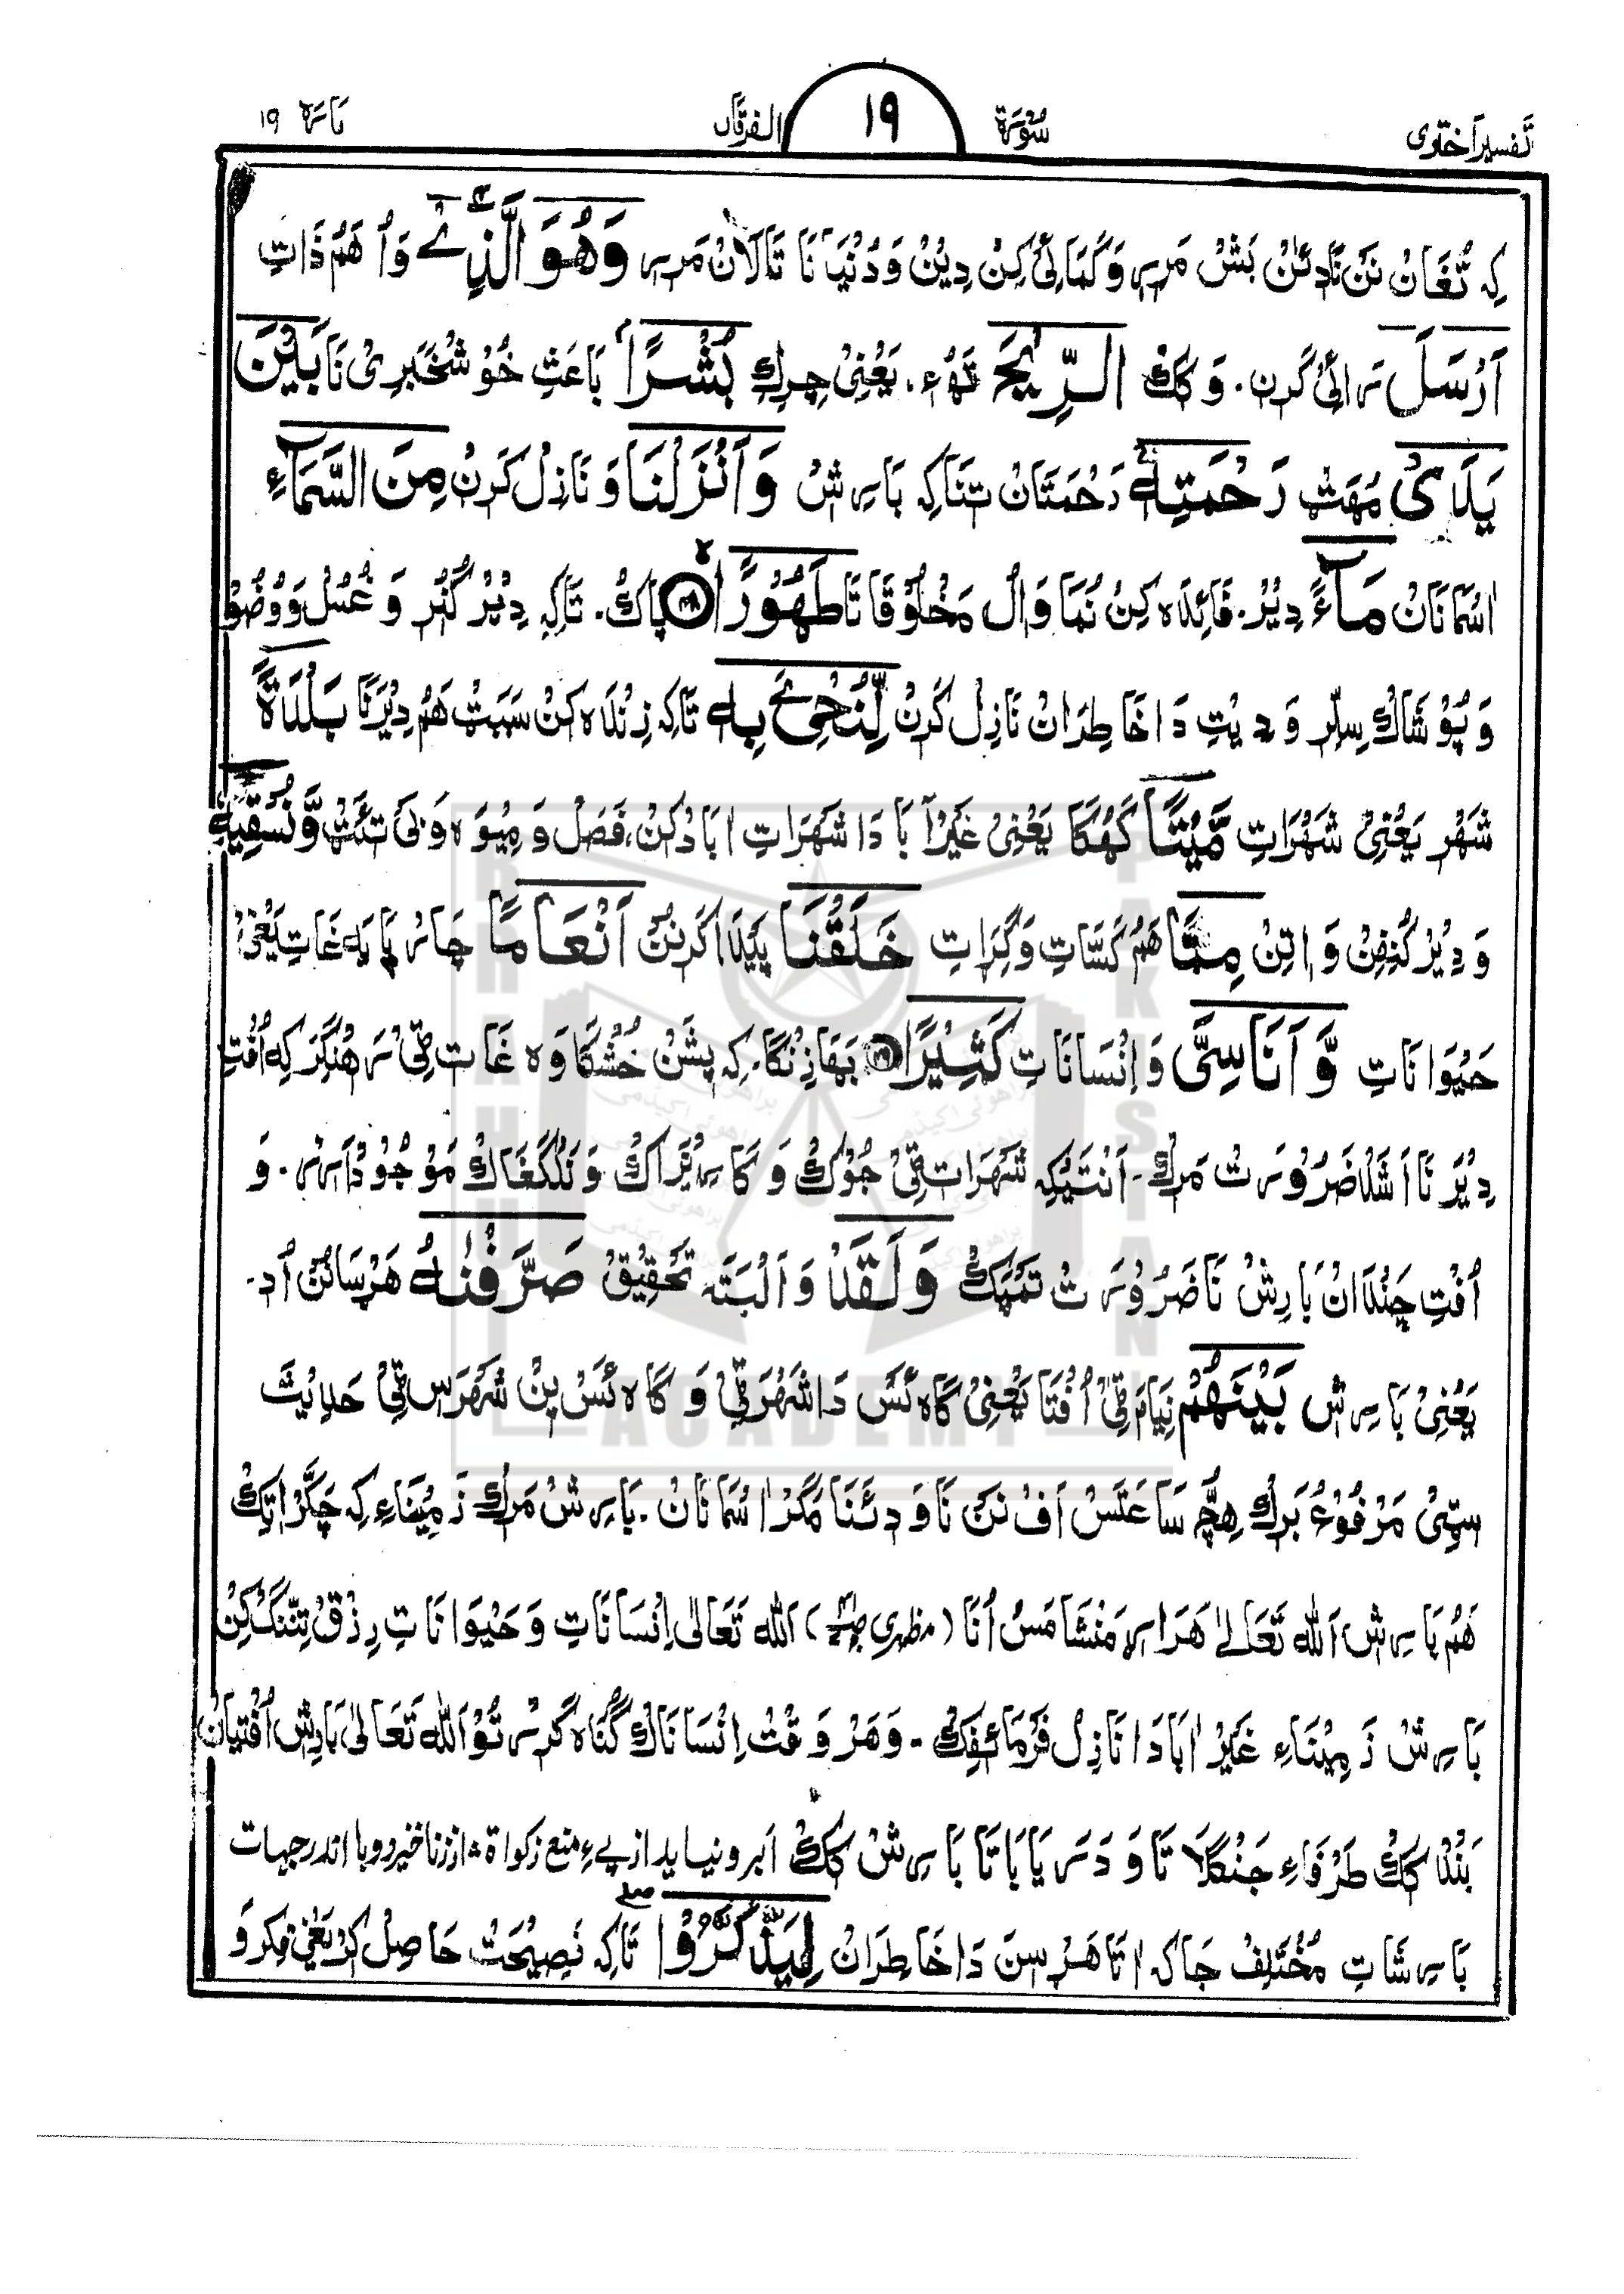 تَفسیر اَختَری سُوْرَة ١٩ الفرقان پَارَہ ١٩
کِہ تُغَانْ نَن بَشْ مَرِیر وَکَمَائِیْ کِنْ دِیْنْ وَدُنْیَا نَا تَالَانْ مَرِیر وَهُوَ الَّذِيْ وَ اُ هَمْ ذَاتِ
اَرْسَلَ رَائِیْ کَرِن. وَکَکْ الرِّیٰحَ تَهْءِ. یَعْنِیْ چِرِکِ بُشْرًا بَاعَثِ خُوْشْخَبَرِیْ نَا بَیْنَ
یَدَیْ مُهَتْ رَحْمَتِهٖ رَحْمَتَانْ تَنَاکِہ بَارِش وَاَنْزَلْنَا وَ نَازِلْ کَرِنْ مِنَ السَّمَآءِ
اٰسْمَانَانْ مَآءً دِیْرْ. فَائِدَہ کِنْ نُمَا وَ اٖلْ مَخْلُوْقَاتَا طَهُوْرًا ﴿٤٨﴾ پَاکْ. تَاکِہ دِیْرْ کُنِرْ وَ غُسْلْ وَ وُضُوْ
وَ پُوْشَاکْ سِلِر وَ دِیتِ دَا خَاطِرَانْ نَازِلْ کَرِنْ لِّنُحْیِۦَ بِهٖ تَاکِہ زِنْدَہ کِنْ سَبَبَتْ هَمْ دِیْرَنَا بَلْدَةً
شَهْر یَعْنِیْ شَهْرَاتِ مَّیْتًا کَهْکَا یَعْنِیْ غَیْرَآبَادَا شَهَرَاتِ اٰبَادْ کِنْ، فَصَلْ وَ مِیْوَہ وَ تَتْ وَّنُسْقِیَهٗ
وَ دِیْرْ کُنِفِنْ وَ اِتِنْ مِمَّا هَمْ کَسَّاتِ وَ گِرَاتِ خَلَقْنَا پَیْدَا کَرِنُنْ اَنْعَامًا چَارْ پَایَہ غَاتِ یَعْنِیْ
حَیْوَانَاتِ وَّ اَنَاسِیَّ وَ اِنْسَانَاتِ کَثِیْرًا ﴿٤٩﴾ بَهَازِنْگَا. کِہ پِشَنْ خُشْکَاوَہ غَاتِ ٹِیْ رَهِنْگِرَ کِہ اُفْتِ
دِیْرَ نَا اَشَدْ ضَرُوْرَتْ مَرِکْ. اَنْتَیْکِہ شَهَرَاتِ ٹِیْ جُوْکْ وَ کَارِیْزَاکْ وَ نَلْکَغَاکْ مَوْجُوْدْ اَرِیر. وَ
اُفْتِ چَنْدَانْ بَارِشْ نَا ضَرُوْرَتْ تَمَّپَکْ وَلَقَدْ وَ اَلْبَتَّہ تَحْقِیْقْ صَرَّفْنٰهُ هَرْسَانُنْ اُدِ.
یَعْنِیْ بَارِش بَیْنَهُمْ نِیَامِ ٹِیْ اُفْتَا یَعْنِیْ گَاہ ئَسْ دَا شَهْرَ ٹِیْ وَ گَاہ ئَسْ پِنْ شَهَرَس ٹِیْ حَدِیْث
سِٹِیْ مَرْفُوْعْ بَرِکْ هِچْ سَاعَتَسْ اَفْ نَنْ نَا وَ دِئَنَا مَگَرْ اٰسْمَانَانْ. بَارِشْ مَرِکْ زَمِیْنَاءِ کِہ چَکَّرْ اِتِکْ
هَمْ بَارِشْ اَللّٰہ تَعَالٰے هَرَارِ مَنْشَا مَسُ اُنَا (مظہری) اَللّٰہ تَعَالٰی اِنْسَانَاتِ وَ حَیْوَانَاتِ رِزْقْ تِنِنْگْ کِنْ
بَارِشْ زَمِیْنَاءِ غَیْرْ اٰبَادَا نَازِلْ فَرْمَائِفِکْ. وَهَرْ وَقْتْ اِنْسَانَاکْ گُنَاہ کَرِیر تُوْ اَللّٰہ تَعَالٰی بَارِش اُفْتِیَانْ
بَنْدْ کَکْ طَرْفَاءِ جَنْگَلَا تَا وَ دَرْیَابَاتَا بَارِشْ کَکْ ابر و نیاید از پےء منع زکواۃ : از زنا خیزد وبا اندر جہات
بَارِشَاتِ مُخْتَلِفْ جَاکَہ اٰتَا هَرْسِنَ دَاخَاطِرَانْ لِیَذَّکَّرُوْا تَاکِہ نَصِیْحَتْ حَاصِلْ کَرِیَعْنِیْ فِکِرْ وَ
BRAHUI ACADEMY PAKISTAN